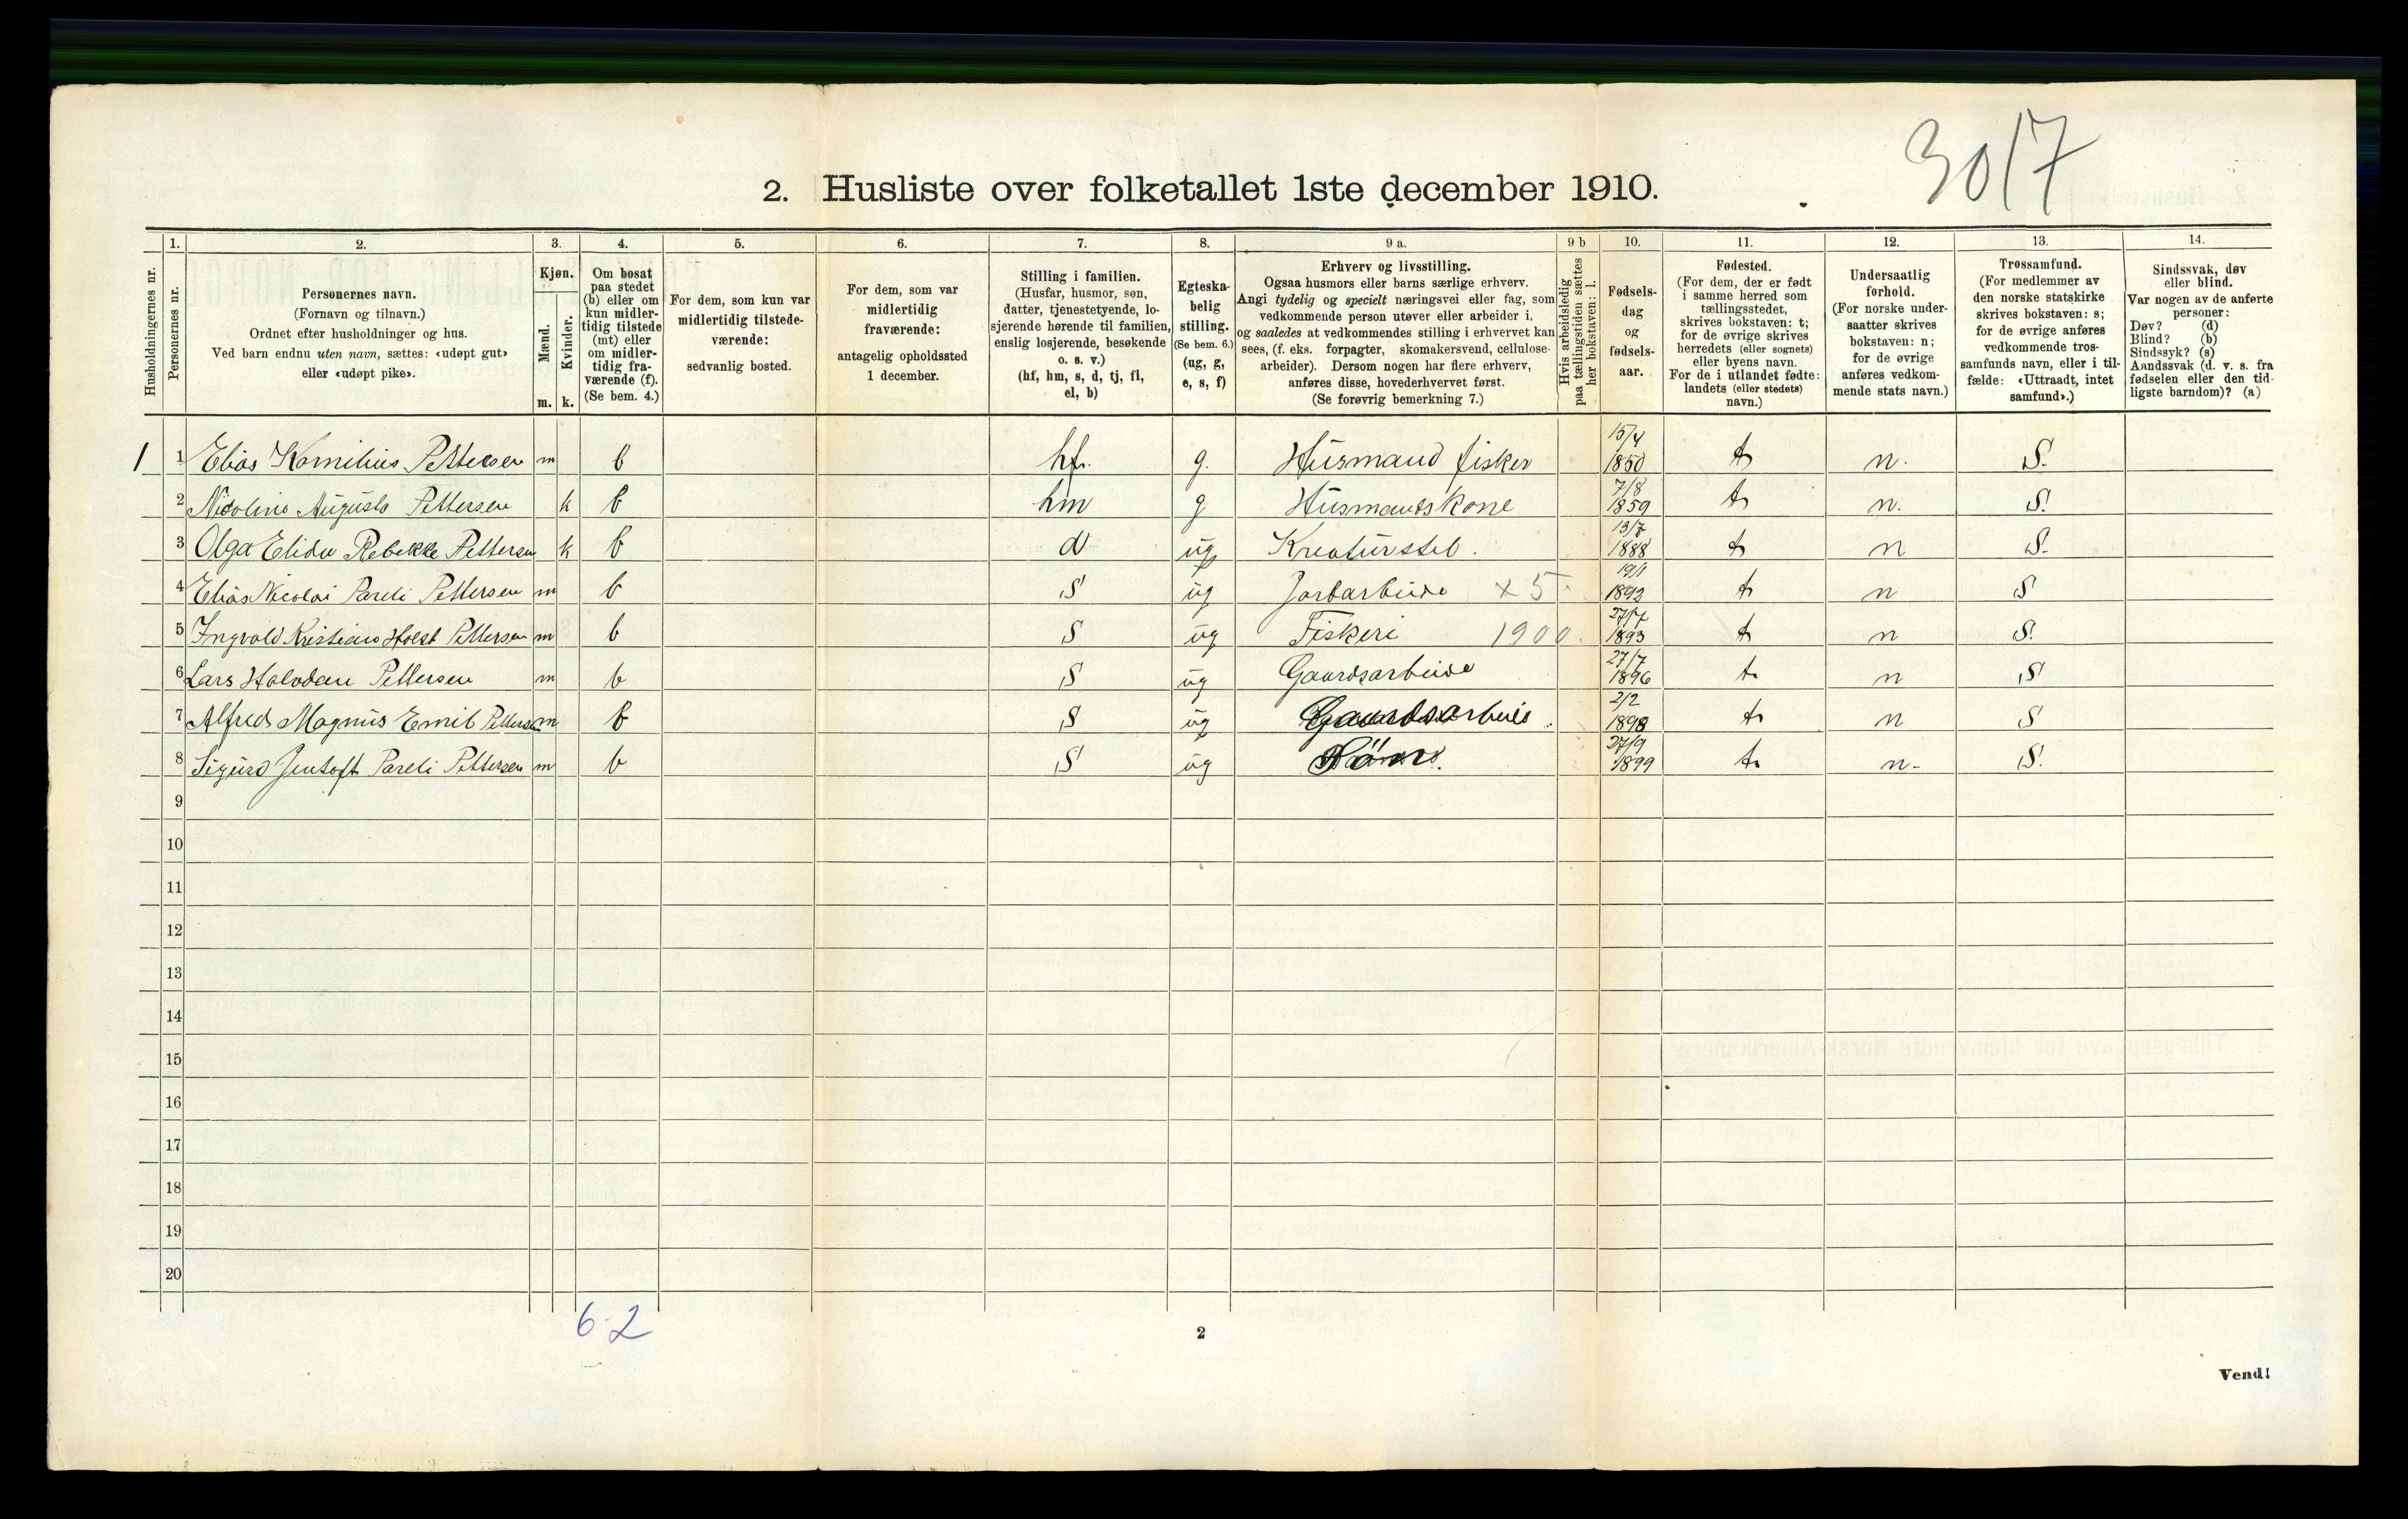 30/7
2. Husliste over folketallet 1ste december 1910.
1. 2. 3. 4. 5. 6. 7. 8. 9 a. 9 b 10. 11. 12. 13. 14.
Husholdningernes nr.
Personernes nr.
Personernes navn.
(Fornavn og tilnavn.)
Ordnet efter husholdninger og hus.
Ved barn endnu uten navn, sættes: «udøpt gut»
eller «udøpt pike».
Kjøn.
Mænd.
Kvinder.
m. k.
Om bosat
paa stedet
(b) eller om
kun midler-
tidig tilstede
(mt) eller
om midler-
tidig fra-
værende (f).
(Se bem. 4.)
For dem, som kun var
midlertidig tilstede-
værende:
sedvanlig bosted.
For dem, som var
midlertidig
fraværende:
antagelig opholdssted
1 december.
Stilling i familien.
(Husfar, husmor, søn,
datter, tjenestetyende, lo-
sjerende hørende til familien,
enslig losjerende, besøkende
o. s. v.)
(hf, hm, s, d, tj, fl,
el, b)
Egteska-
belig
stilling.
(Se bem. 6.)
(ug, g,
e, s, f)
Erhverv og livsstilling.
Ogsaa husmors eller barns særlige erhverv.
Angi tydelig og specielt næringsvei eller fag, som
vedkommende person utøver eller arbeider i,
og saaledes at vedkommendes stilling i erhvervet kan
sees, (f. eks. forpagter, skomakersvend, cellulose-
arbeider). Dersom nogen har flere erhverv,
anføres disse, hovederhvervet først.
(Se forøvrig bemerkning 7.)
Hvis arbeidsledig
paa tællingstiden sættes
her bokstaven: l.
Fødsels-
dag
og
fødsels-
aar.
Fødested.
(For dem, der er født
i samme herred som
tællingsstedet,
skrives bokstaven: t;
for de øvrige skrives
herredets (eller sognets)
eller byens navn.
For de i utlandet fødte:
landets (eller stedets)
navn.)
Undersaatlig
forhold.
(For norske under-
saatter skrives
bokstaven: n;
for de øvrige
anføres vedkom-
mende stats navn.)
Trossamfund.
(For medlemmer av
den norske statskirke
skrives bokstaven: s;
for de øvrige anføres
vedkommende tros-
samfunds navn, eller i til-
fælde: «Uttraadt, intet
samfund».)
Sindssvak, døv
eller blind.
Var nogen av de anførte
personer:
Døv? (d)
Blind? (b)
Sindssyk? (s)
Aandssvak (d. v. s. fra
fødselen eller den tid-
ligste barndom)? (a)
1 1 Elias Kornilius Pettersen m b hf. g. Husmand fisker 15/4 1850 t n. S.
2 Nicoline Augusta Pettersen k b hm g Husmandskone 7/8 1859 t n. S.
3 Olga Elida Rebekke Pettersen k b d ug Kreaturstel. 13/7 1888 t n S.
4 Elias Nicolai Pareli Pettersen m b S ug Jordarbeide x 5 19/1 1892 t n S
5 Ingvald Kristians Holst Pettersen m b S ug Fiskeri 1900. 27/7 1893 t n S.
6 Lars Halvdan Pettersen m b S ug Gaardsarbeide 27/7 1896 t n S
7 Alfred Magnus Emil Pettersen m b S ug Gaardsarbeide 2/2 1898 t n S
8 Sigurd Jentoft Pareli Pettersen m b S ug 27/9 1899 t n. S.
9
10
11
12
13
14
15
16
17
18
19
20
6-2
2
Vend!